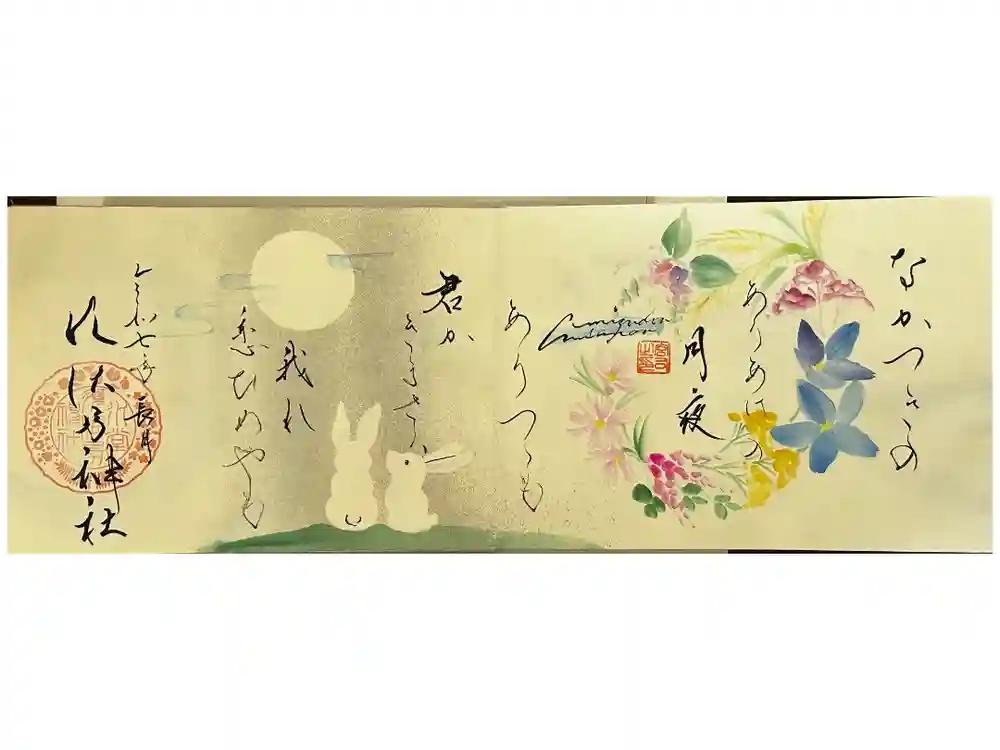 なかつきの
ありあけの
月夜
宮司之印
ありつゝも
君か
きまさは
我れ
恋ひめやも
令和七年 長月
神社